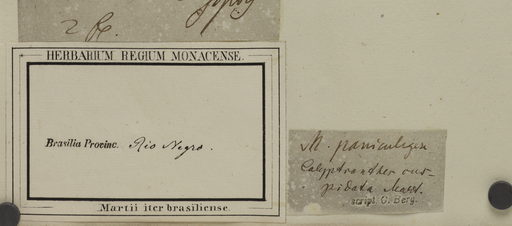 HERBARIUM REGIUM MONACENSE.
Brasilia Provinc. Rio Negro.
Martii iter brasiliense.
M. paniculigera
Calyptranthes cus-
pidata Mart.
scrips. O. Berg.